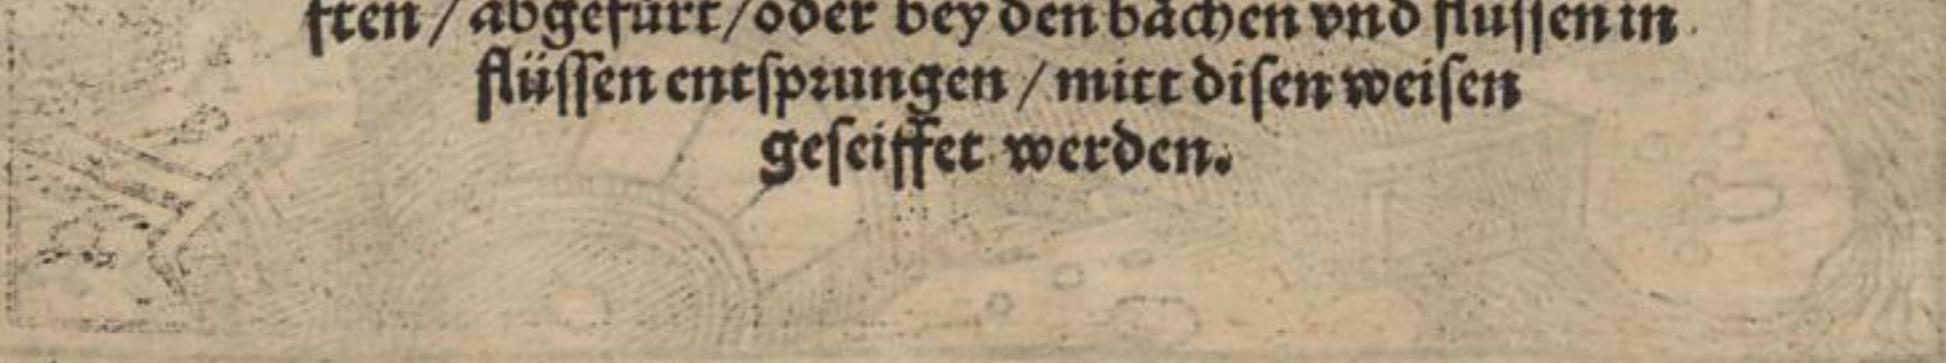 ften / abgefürt / oder bey den bächen vnd flüssen in
flüssen entsprungen / mitt disen weisen
geseiffet werden.